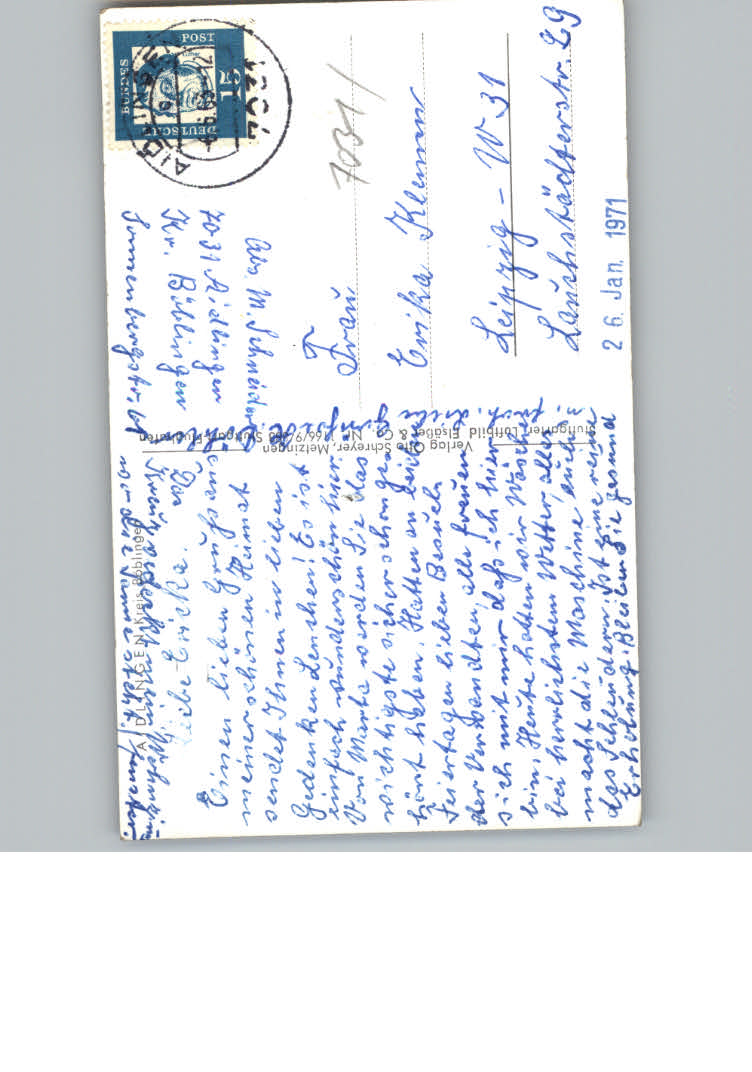 AIDLINGEN Kreis Böblingen
Liebe Erika.
Einen lieben Gruß aus
meiner schönen Heimat
sendet Ihnen in lieben
Gedenken Lenchen! Es ist
einfach wunderschön hier.
Von Marta werden Sie das
wichtigste sicher schon ge-
hört haben. Hatten an beiden
Feiertagen lieben Besuch
der Verwandten, alle freuen
sich mit mir daß ich hier
bin. Heute hatten wir Wäsche
bei herrlichstem Wetter, alles
macht die Maschine auch
das Schleudern. Ist eine reine
Erholung. Bleiben Sie gesund
Das
Kreuz
Verlag Otto Schreyer, Metzingen
Stuttgarter Luftbild Elsäßer & Co. Nr. 9/66 Stuttgart-Flughafen
DEUTSCHE BUNDESPOST
15
AIDLINGEN
Abs M. Schneider
7031 Aidlingen
Kr. Böblingen
Sonnenbergstr.
7031/
Frau
Erika Klemm
Leipzig - W 31
Lauchstädterstr. 29
26. Jan. 1971